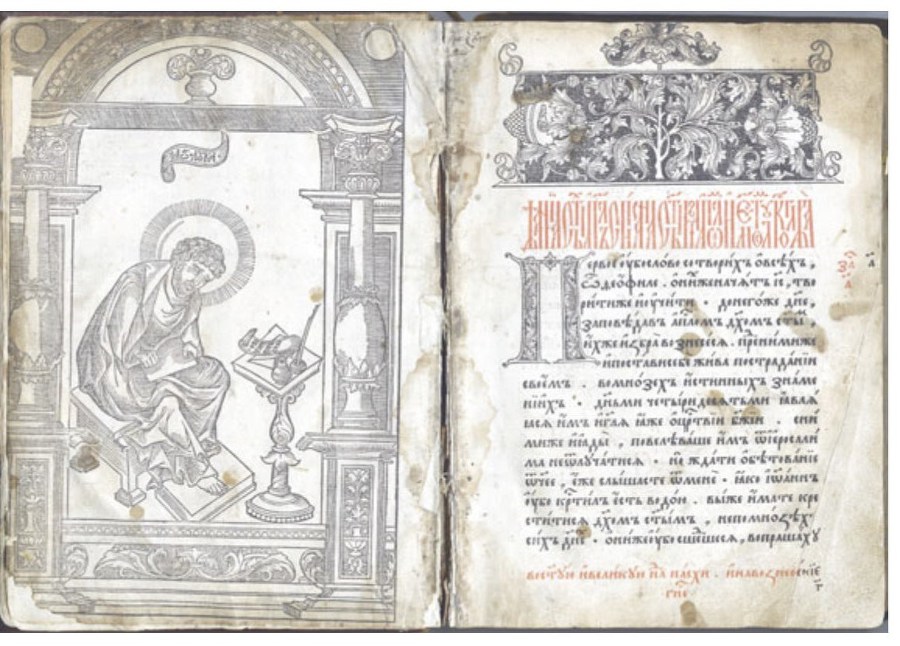 Первое ѹ҆бо сло́во сотвори́хъ ѡ҆ всѣ́хъ,
ѽ ѳео́филе. ѡ҆ ни́хже нача́тъ і҆с҃, тво
ри́ти же и҆ ѹ҆чи́ти. до него́же дн҃е,
заповѣ́давъ а҆пⷭ҇ломъ дх҃омъ ст҃ы́м,
и҆́хже и҆збра̀ вознесе́сѧ. пред ни́ми же
и҆ поста́ви себѐ жи́ва по страда́нїи
свое́мъ. во мно́зехъ и҆́стинныхъ зна́ме
нїихъ. дн҃ьми четы́ридесѧтьми ꙗ҆влѧ́ѧ
сѧ и҆̀мъ и҆ гл҃ѧ ꙗ҆́же ѡ҆ црⷭ҇твїи бж҃їи. с ни́
ми же и҆ ꙗ҆ды̀, повелѣва́ше и҆̀мъ ѿ і҆еросали́
ма не ѿлуча́тисѧ. но жда́ти ѡ҆бѣтова́нїе
ѿч҃ее, е҆́же слы́шасте ѿ менѐ. ꙗ҆́ко і҆ѡа́ннъ
ѹ҆́бо крⷭ҇ти́лъ є҆́сть водо́ю. вы́ же и҆́мате кре
сти́тисѧ дх҃омъ ст҃ы́мъ, не по мно́зѣхъ
си́хъ дн҃ехъ. ѡ҆ни́ же ѹ҆̀бо сше́дшесѧ, вопраша́хꙋ